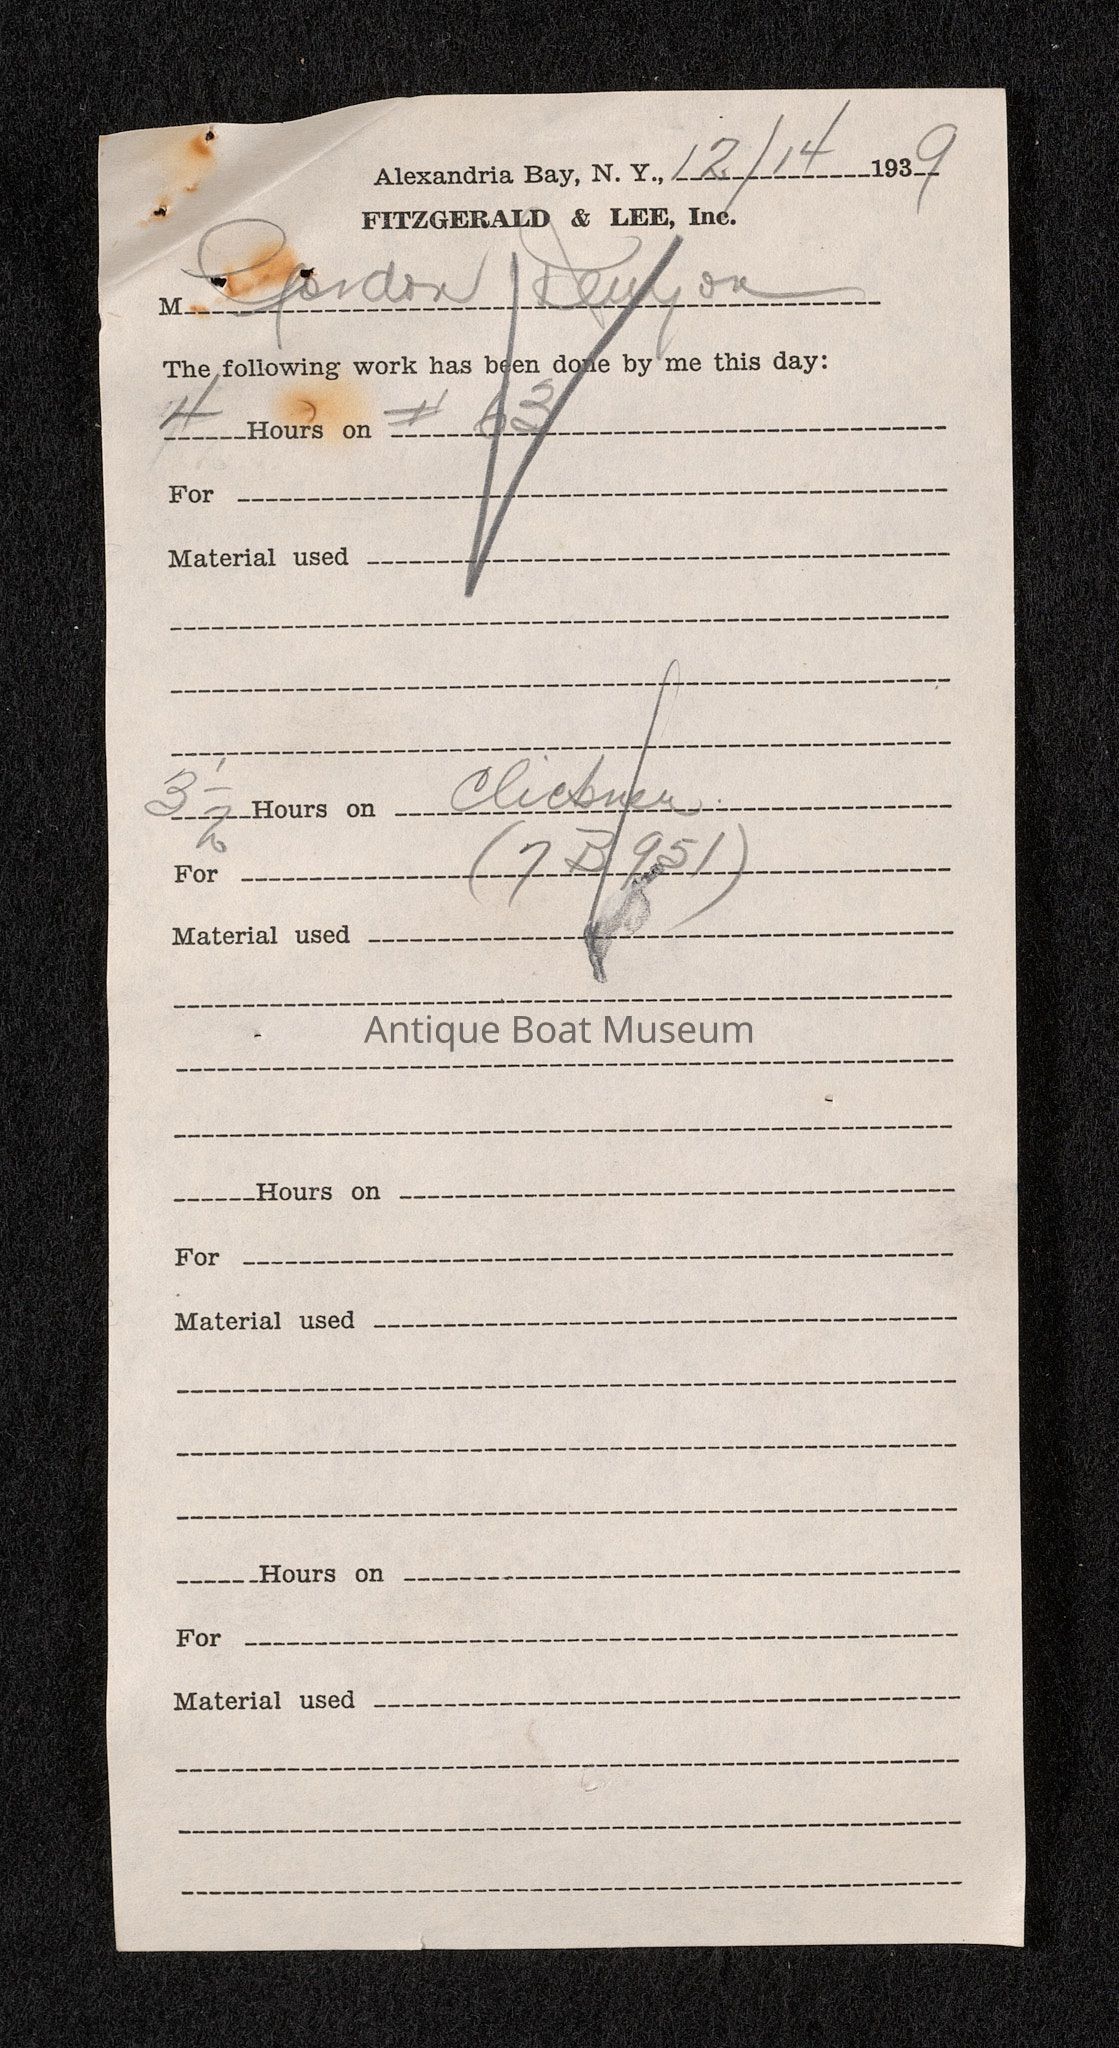 Alexandria Bay, N. Y., 12/14 1939
FITZGERALD & LEE, Inc.
M Gordon Denyon
The following work has been done by me this day:
4 Hours on # 63
For
Material used
3 1/2 Hours on
For (7 B 951)
Material used
Antique Boat Museum
Hours on
For
Material used
Hours on
For
Material used